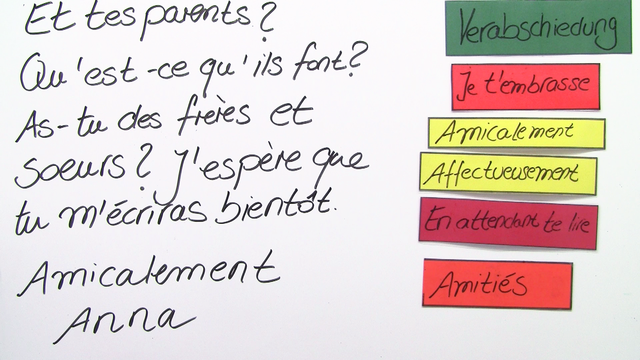 Et tes parents?
Qu'est-ce qu'ils font?
As-tu des frères et
soeurs? J'espère que
tu m'écriras bientôt.
Amicalement
Anna
Verabschiedung
Je t'embrasse
Amicalement
Affectueusement
En attendant te lire
Amitiés